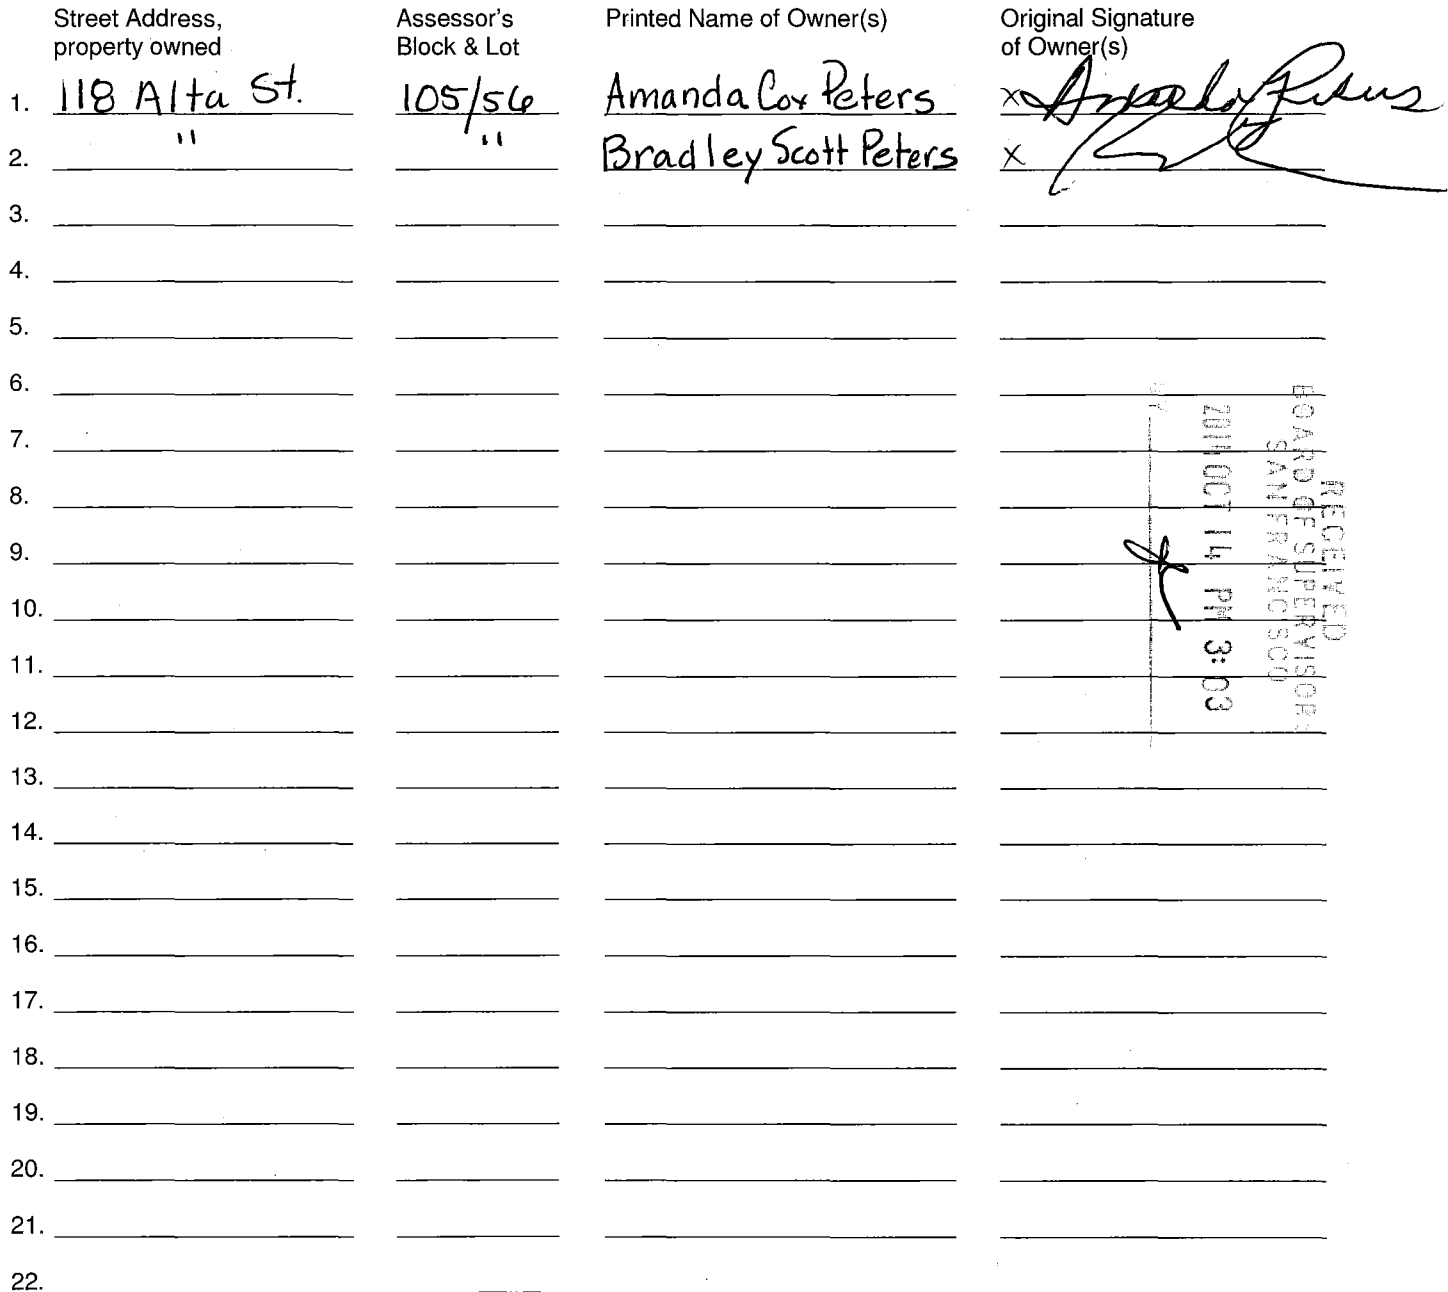 Street Address, property owned
Assessor's Block & Lot
Printed Name of Owner(s)
Original Signature of Owner(s)
1. 118 Alta St. 105/56 Amanda Cox Peters x Amanda Peters
2. " " Bradley Scott Peters x
3.
4.
5.
6.
7.
8.
9.
10.
11.
12.
13.
14.
15.
16.
17.
18.
19.
20.
21.
22.
RECEIVED
BOARD OF SUPERVISOR
SAN FRANCISCO
OCT 14 PM 3:03